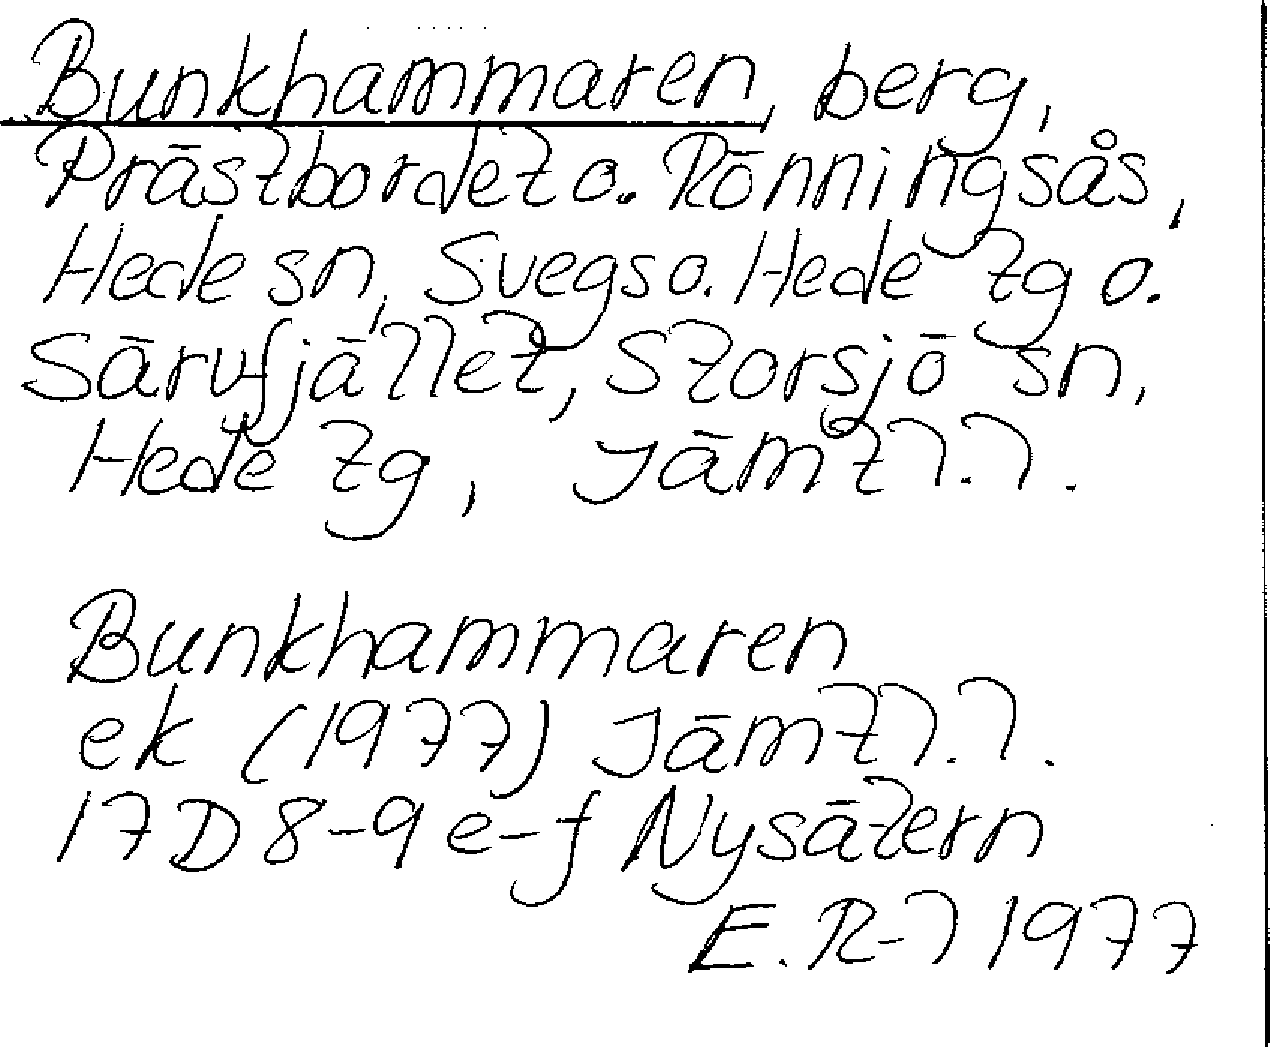 Bunkhammaren, berg,
Prästbordet o. Rönningsås,
Hede sn, Svegs o. Hede tg o.
Särvfjället, Storsjö sn,
Hede tg, Jämtl.l.
Bunkhammaren
ek (1977) Jämtl.l.
17D 8-9 e-f Nysätern
E. R-l 1977